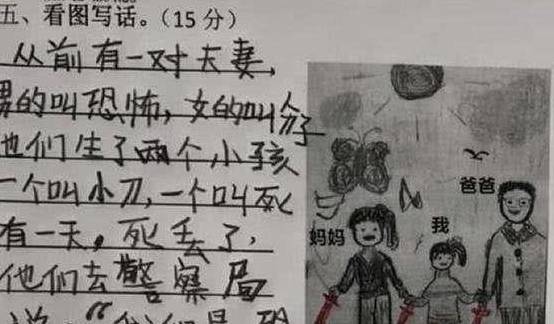 五、看图写话。(15分)
从前有一对夫妻,
男的叫恐怖,女的叫分子
他们生了两个小孩
一个叫小刀,一个叫死
有一天,死丢了,
他们去警察局
说:“我们是恐
爸爸
妈妈
我